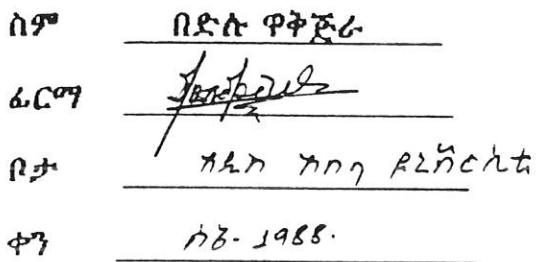 ስም በድሉ ዋቅጅራ
ፊርማ
ቦታ አዲስ አበባ ዩኒቨርሲቲ
ቀን ሰኔ- 1988.